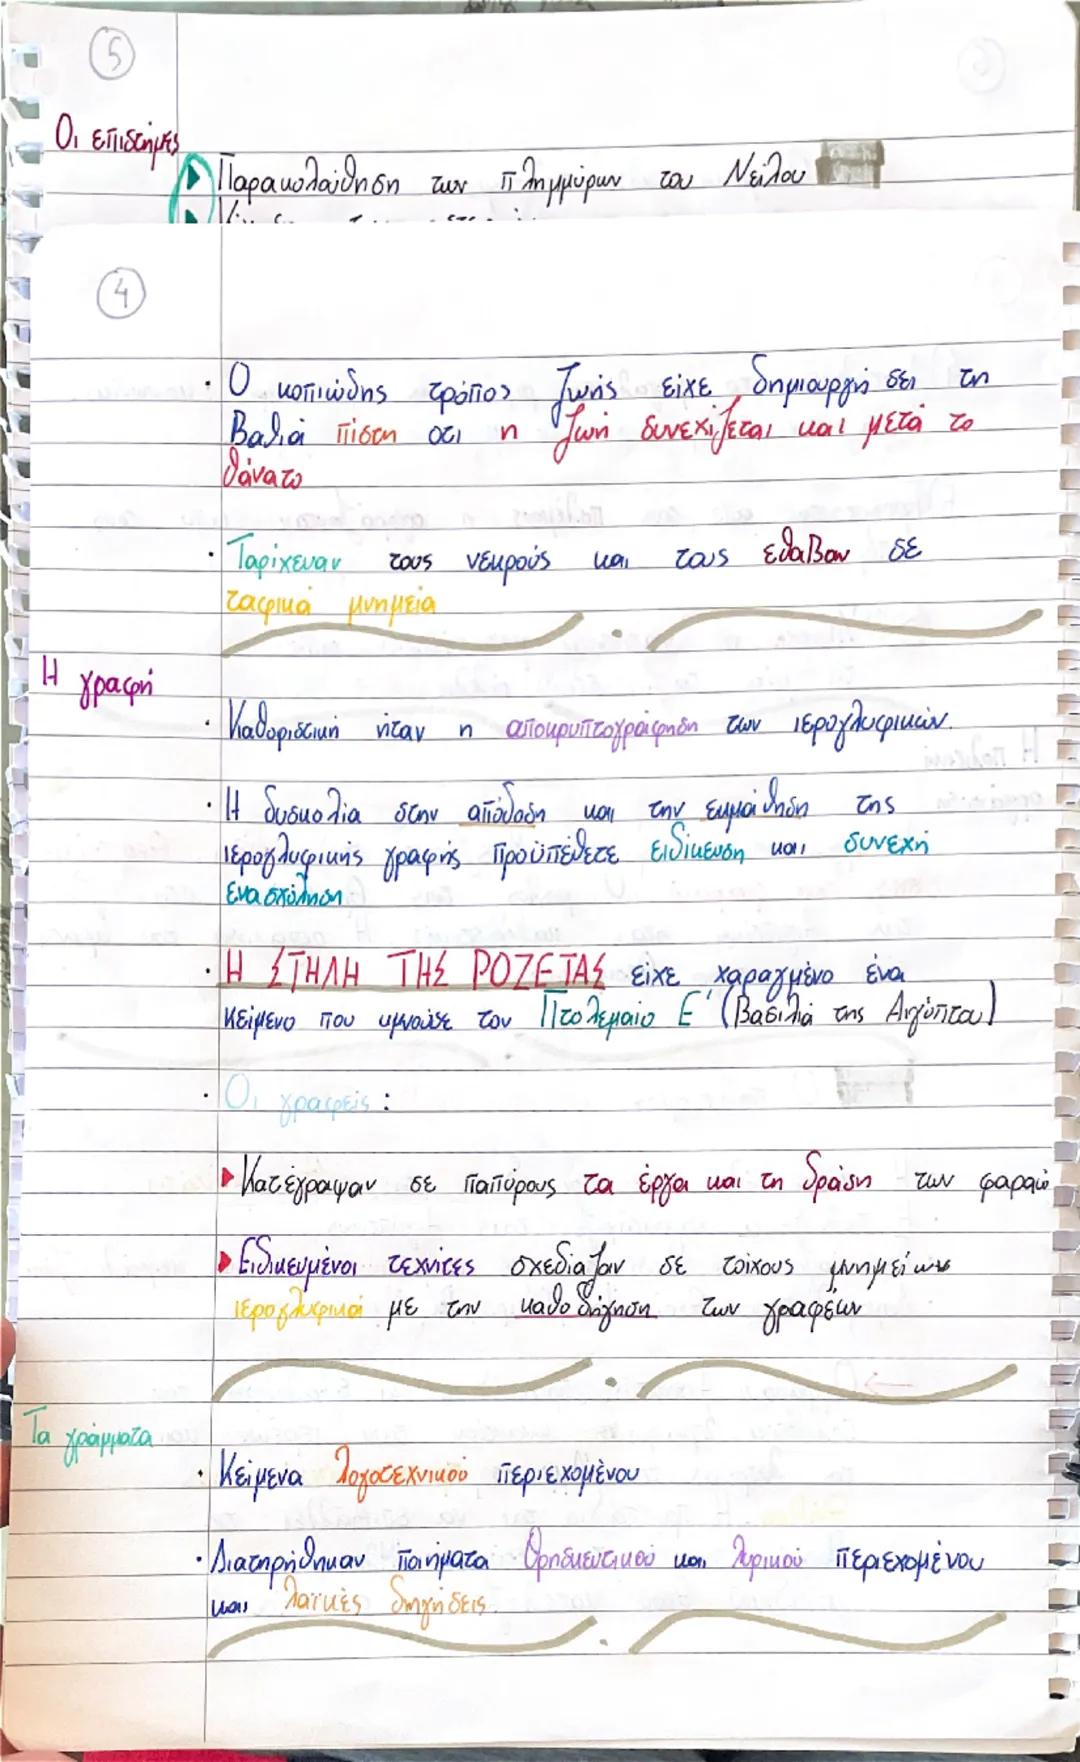 5
Οι επιστήμες
Παρακολούθηση των πλημμύρων του Νείλου
4
· Ο κοπιώδης τρόπος ζωής είχε δημιουργήσει τη
βαθιά πίστη οτι η ζωή συνεχίζεται και μετά το
θάνατο
· Ταρίχευαν τους νεκρούς και τους έθαβαν σε
ταφικά μνημεία
Η γραφή
· Καθοριστική ήταν η αποκρυπτογράφηση των ιερογλυφικών.
· Η δυσκολία στην απόδοση και την εκμάθηση της
ιερογλυφικής γραφής προϋπέθετε ειδίκευση και συνεχή
ενασχόληση
· Η ΣΤΗΛΗ ΤΗΣ ΡΟΖΕΤΑΣ είχε χαραγμένο ένα
κείμενο που υμνούσε τον Πτολεμαίο Ε' (βασιλιά της Αιγύπτου)
· Οι γραφείς :
Κατέγραψαν σε παπύρους τα έργα και τη δράση των φαραώ
Ειδικευμένοι τεχνίτες σχεδίαζαν σε τοίχους μνημείων
ιερογλυφικά με την καθοδήγηση των γραφέων
Τα γράμματα
· Κείμενα λογοτεχνικού περιεχομένου
· Διατηρήθηκαν ποιήματα θρησκευτικού και λυρικού περιεχομένου
και λαϊκές διηγήσεις.